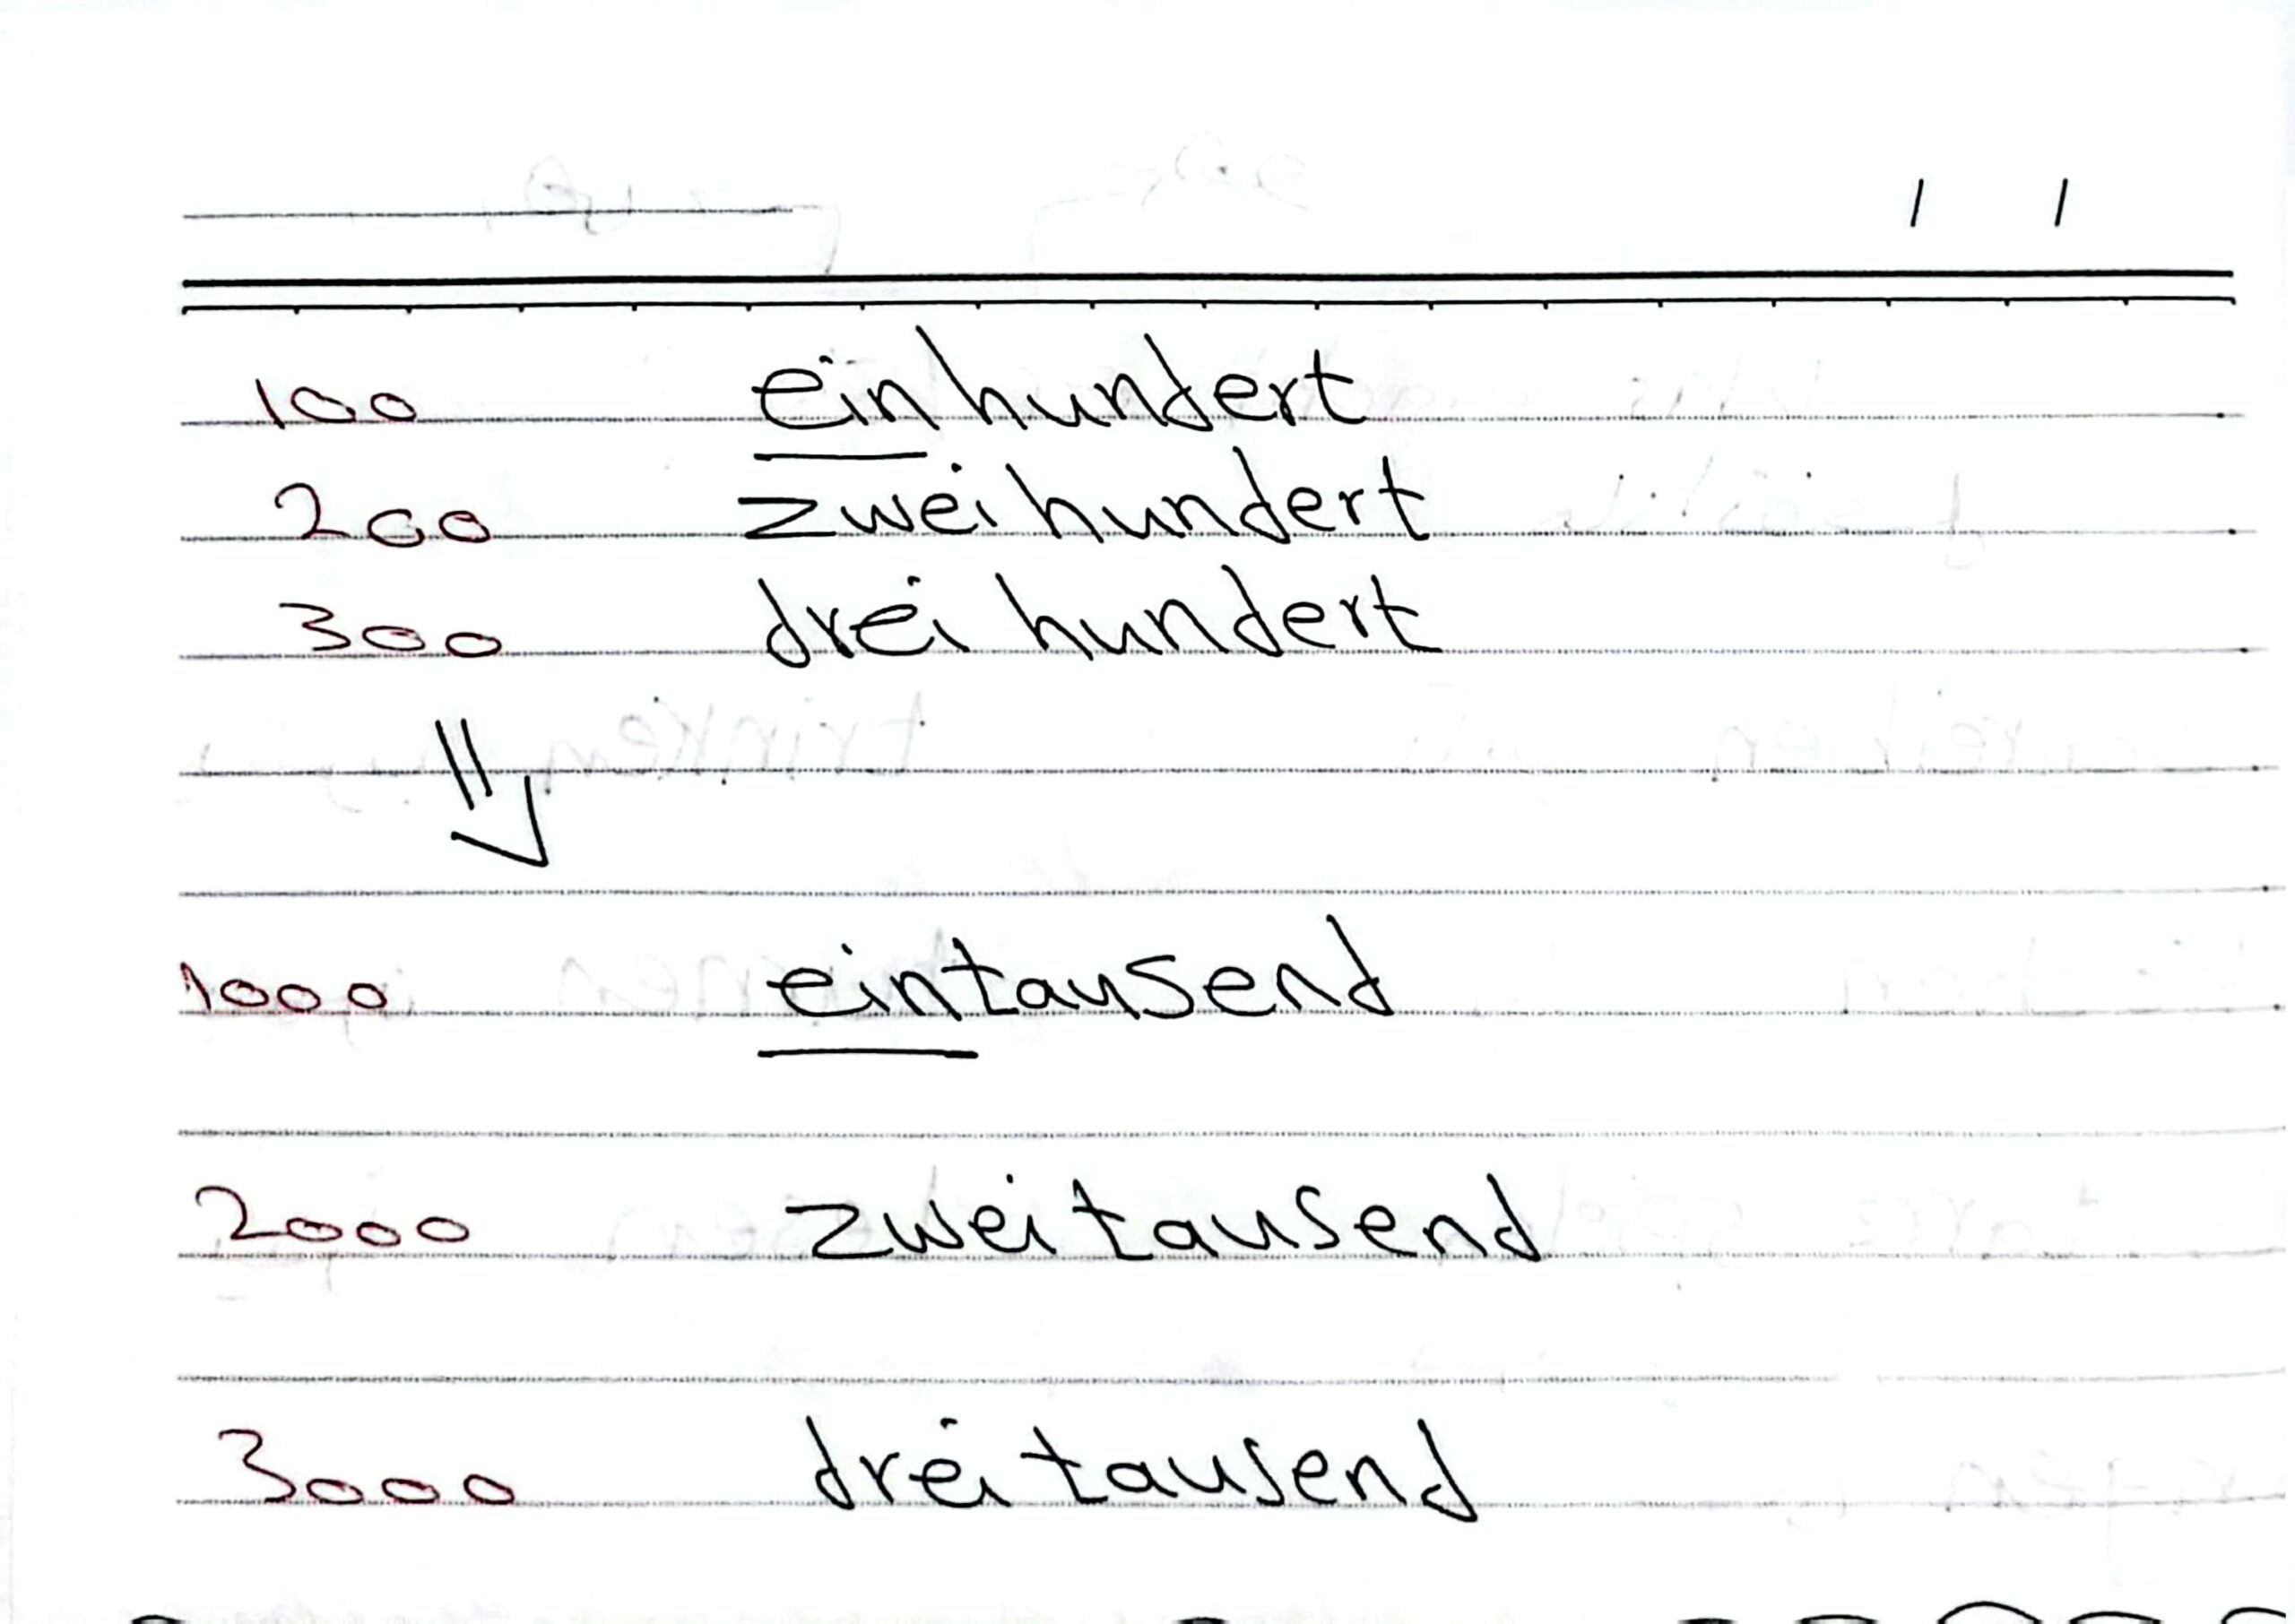 100 einhundert
200 zweihundert
300 dreihundert
1000 eintausend
2000 zweitausend
3000 dreitausend